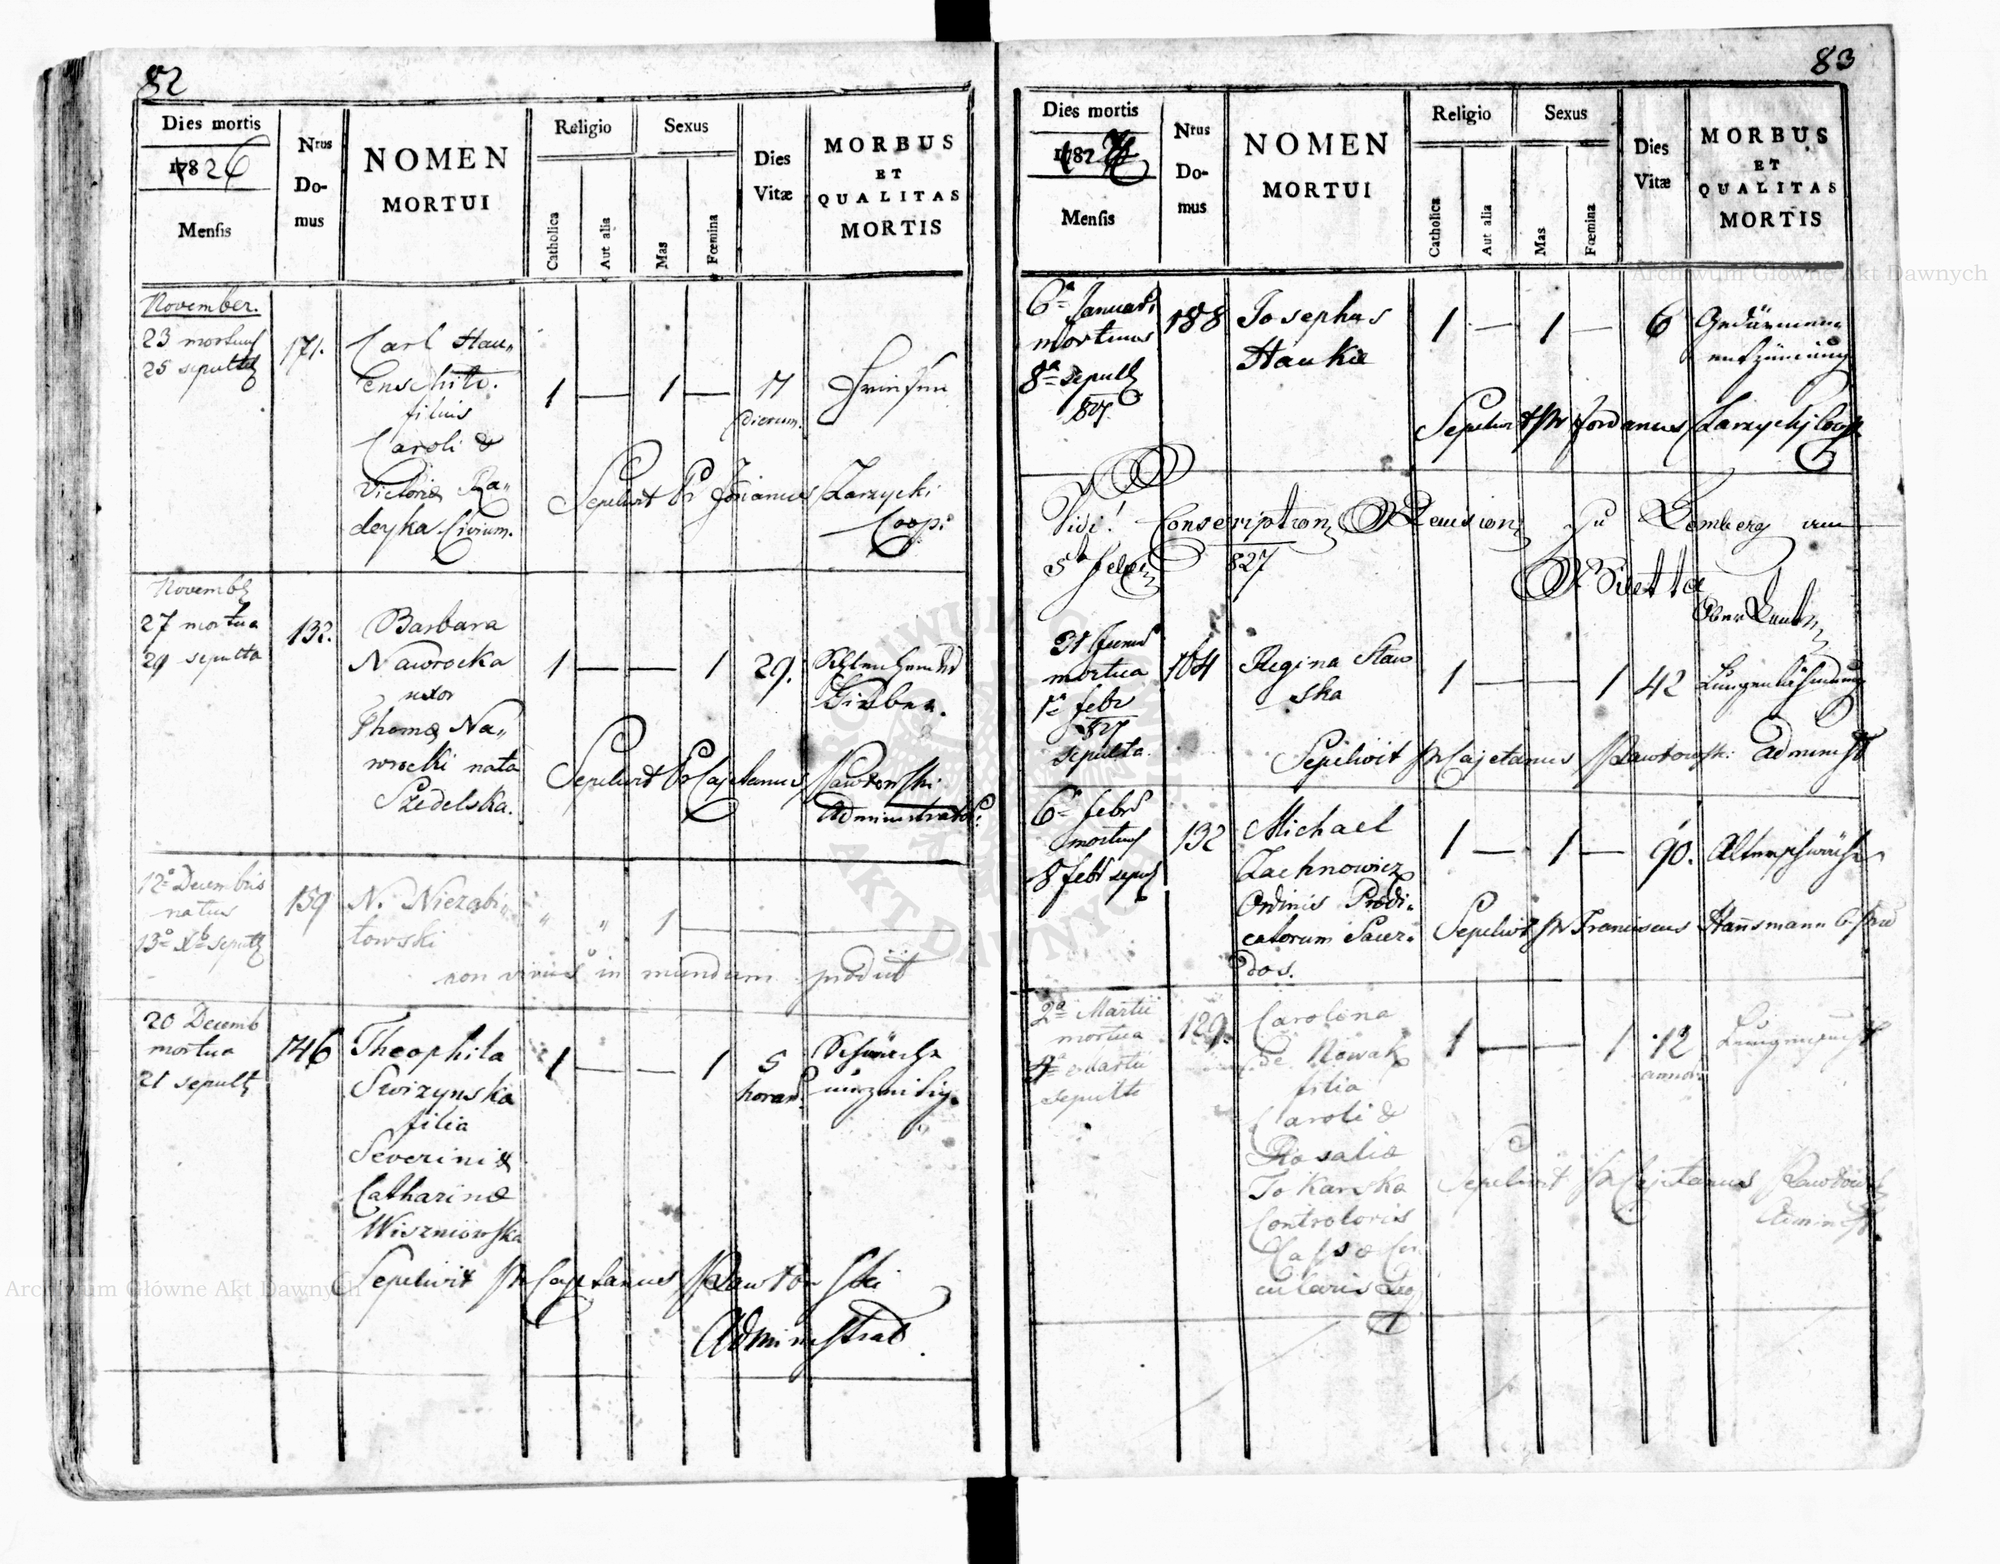 82
Dies mortis
1826
Mensis
Nrus
Do-
mus
NOMEN
MORTUI
Religio
Catholica
Aut alia
Sexus
Mas
Fœmina
Dies
Vitæ
MORBUS
ET
QUALITAS
MORTIS
November.
23 mortuus
25 sepultus
171.
Carl Hau„
filius
Caroli &
Victoriæ Ra„
deyka Civium.
1 — 1 — 17
dierum.
Sepelivit Pr Jordanus Zarzycki
Coop:
Novemb
27 mortua
29 sepulta
132.
Barbara
Nawrocka
uxor
Thomæ Na„
wrocki nata
Szedelska.
1 — — 1 29.
Sepelivit Pr Cajetanus Pawłowski
Administrator:
12a Decembris
natus
13a Xb sepult
159
N. Niezabi„
towski
" " 1
non vivus in mundum prodiit
20 Decemb
mortua
21 sepult
146
Theophila
Swizynska
filia
Severini &
Catharinæ
Wiszniowska
1 — — 1 5
horar.
Schwäche
Sepelivit Pr Cajetanus Pawłowski
Administrat.
83
Dies mortis
1827
Mensis
Nrus
Do-
mus
NOMEN
MORTUI
Religio
Catholica
Aut alia
Sexus
Mas
Fœmina
Dies
Vitæ
MORBUS
ET
QUALITAS
MORTIS
6a Januari
mortuus
8a sepult
827.
188
Josephus
Haukie
1 — 1 — 6
Gedärmen
entzündung
Sepelivit Pr Jordanus Zarzycki Coop
Vidi! Conscriptions Revision zu Lemberg am
5t Febr 827
31 Januar
mortua
1a febr
827
sepulta.
164
Regina Staw
ska
1 — — 1 42
Lungenlähmung
Sepelivit Pr Cajetanus Pawłowski Administ
6a febr
mortuus
8 febr sepult
132
Michael
Zachnowicz
Ordinis Prædi„
catorum Sacer„
dos.
1 — 1 — 90.
Altersschwäche
Sepelivit Pr Franciscus Hansmann
2a Martii
mortua
4a Martii
sepulta
129.
Carolina
de Nowak
filia
Caroli &
Rosaliæ
Tokarska
Controloris
Cassæ Cir
cularis
1 — — 1 12
annor.
Lungensucht
Sepelivit Pr Cajetanus Pawłowski
Administ
Archiwum Główne Akt Dawnych
Archiwum Główne Akt Dawnych
ARCHIWUM GŁÓWNE
AKT DAWNYCH